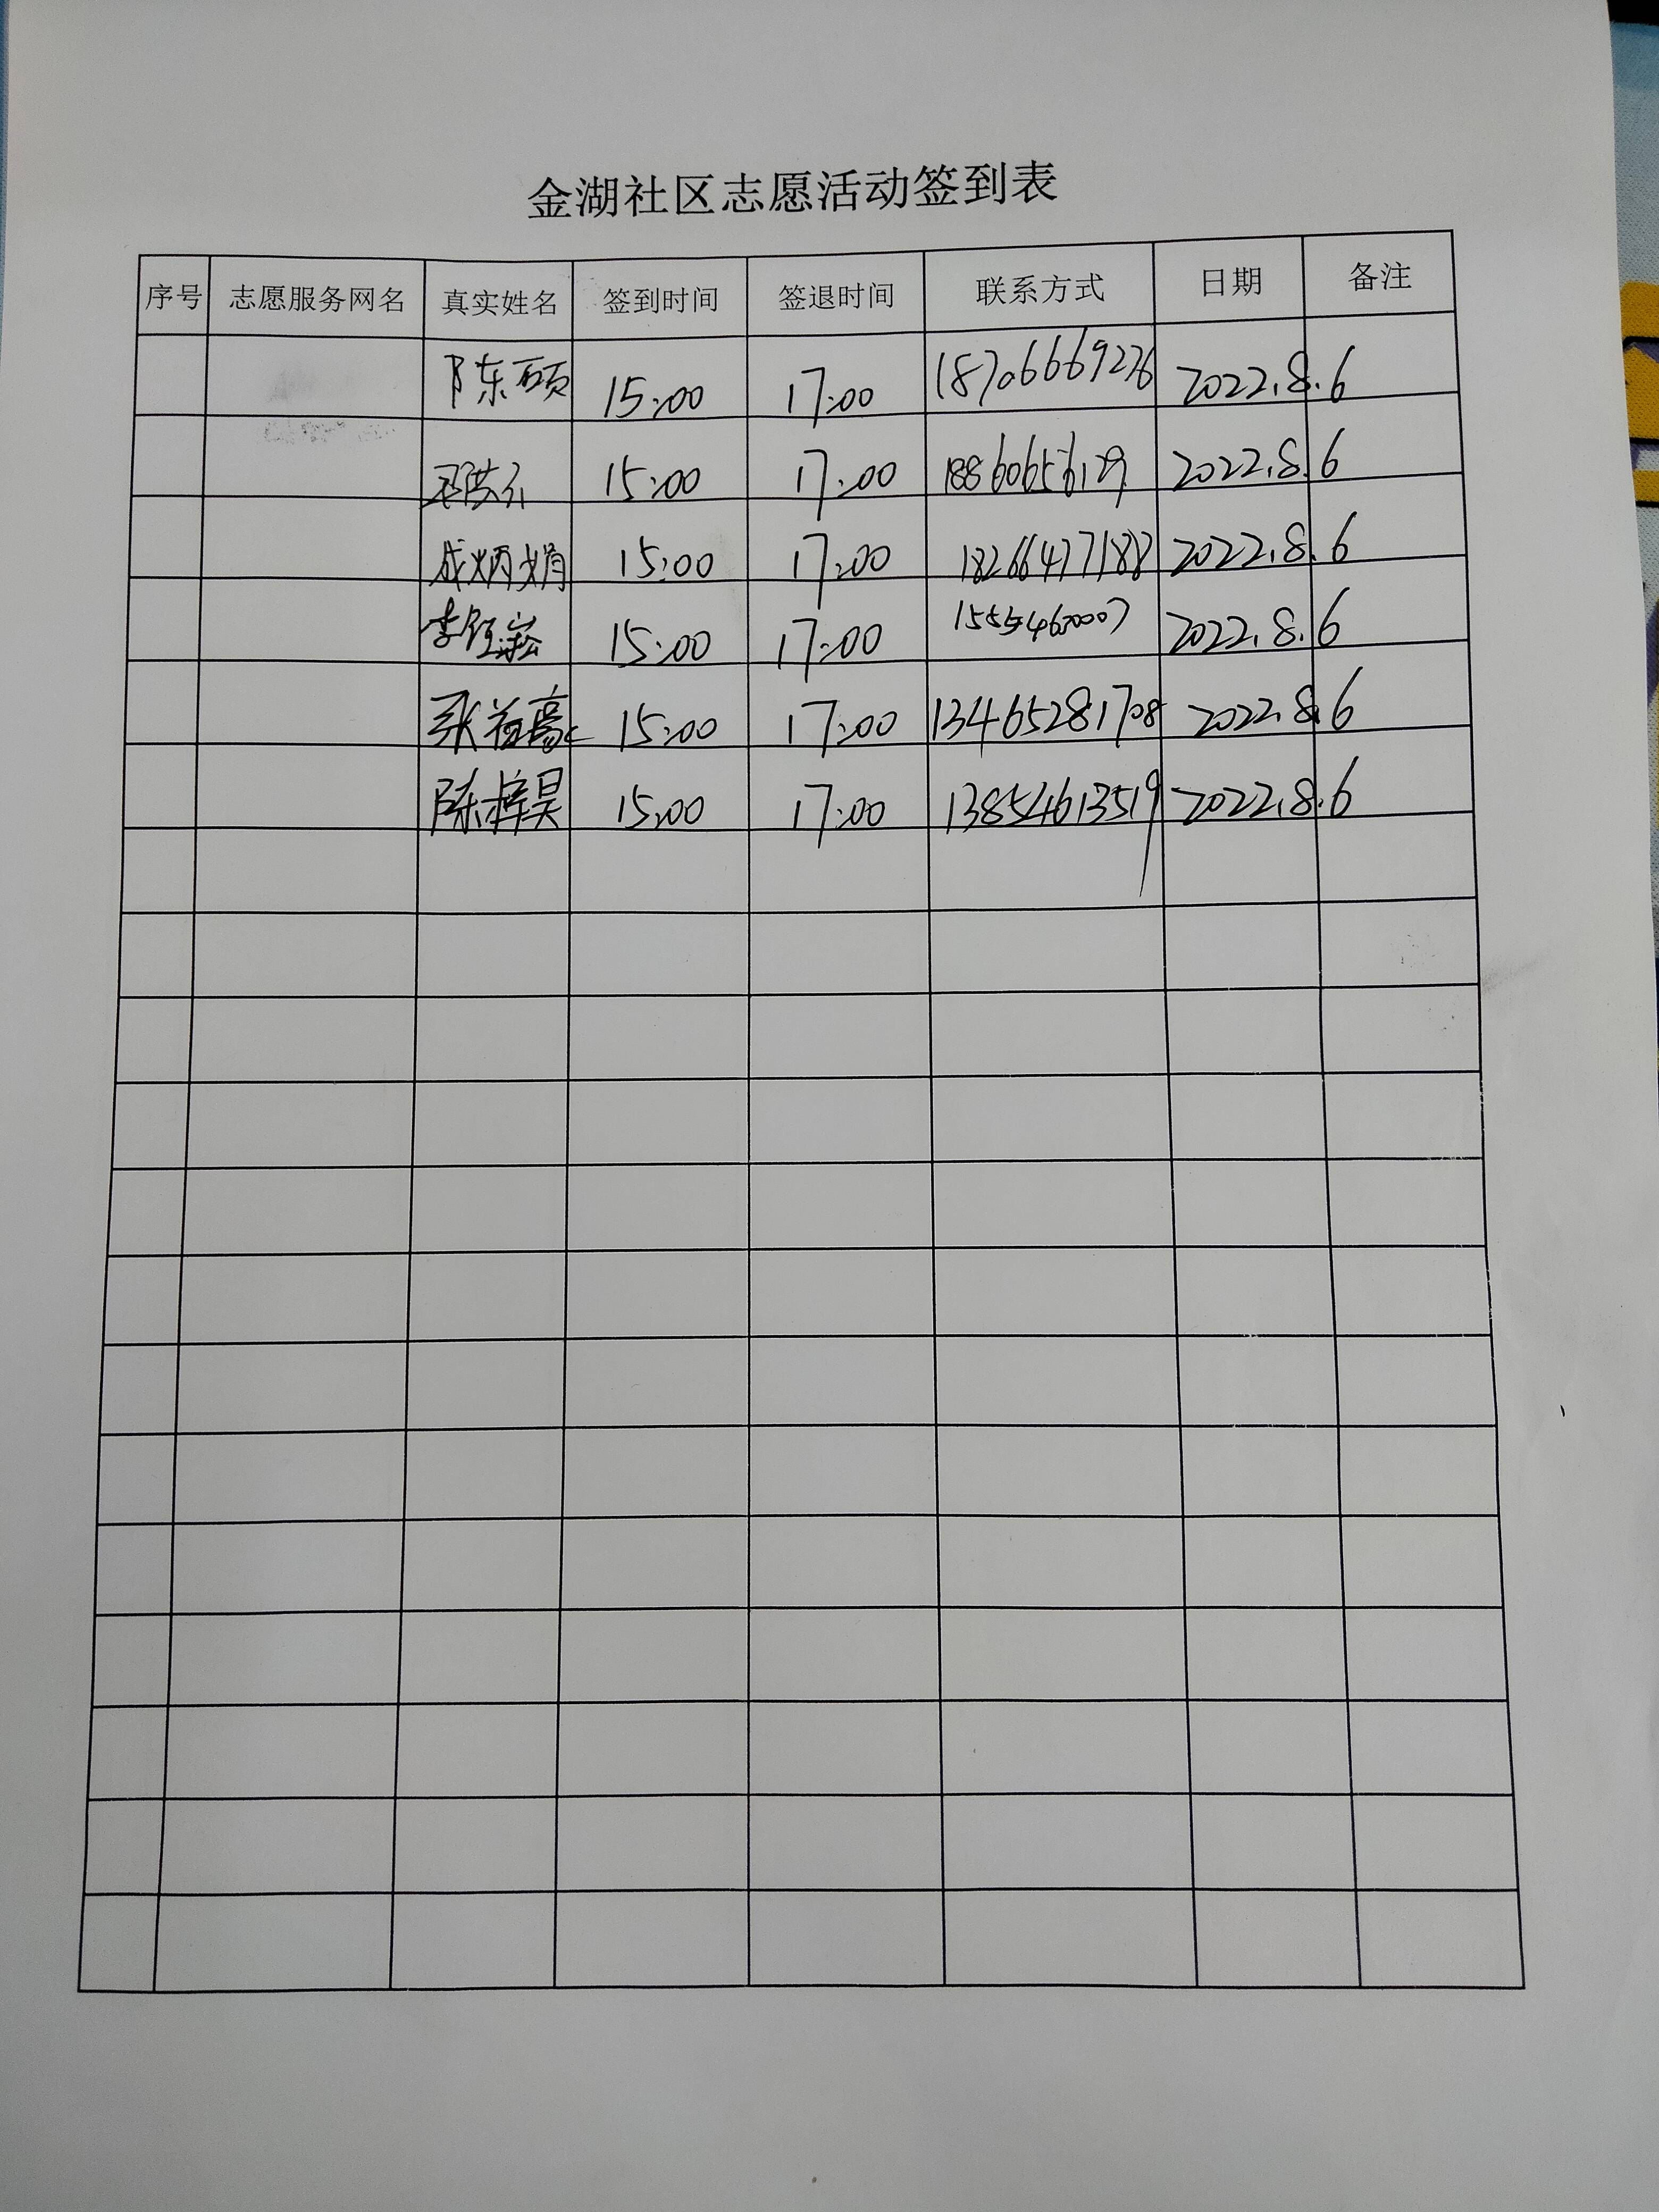 金湖社区志愿活动签到表
序号 志愿服务网名 真实姓名 签到时间 签退时间 联系方式 日期 备注
陈东硕 15:00 17:00 18706669276 2022.8.6
15:00 17:00 18860656129 2022.8.6
成炳娟 15:00 17:00 18266477188 2022.8.6
李钰崧 15:00 17:00 2022.8.6
张益豪 15:00 17:00 13465281708 2022.8.6
陈梓昊 15:00 17:00 13854613519 2022.8.6